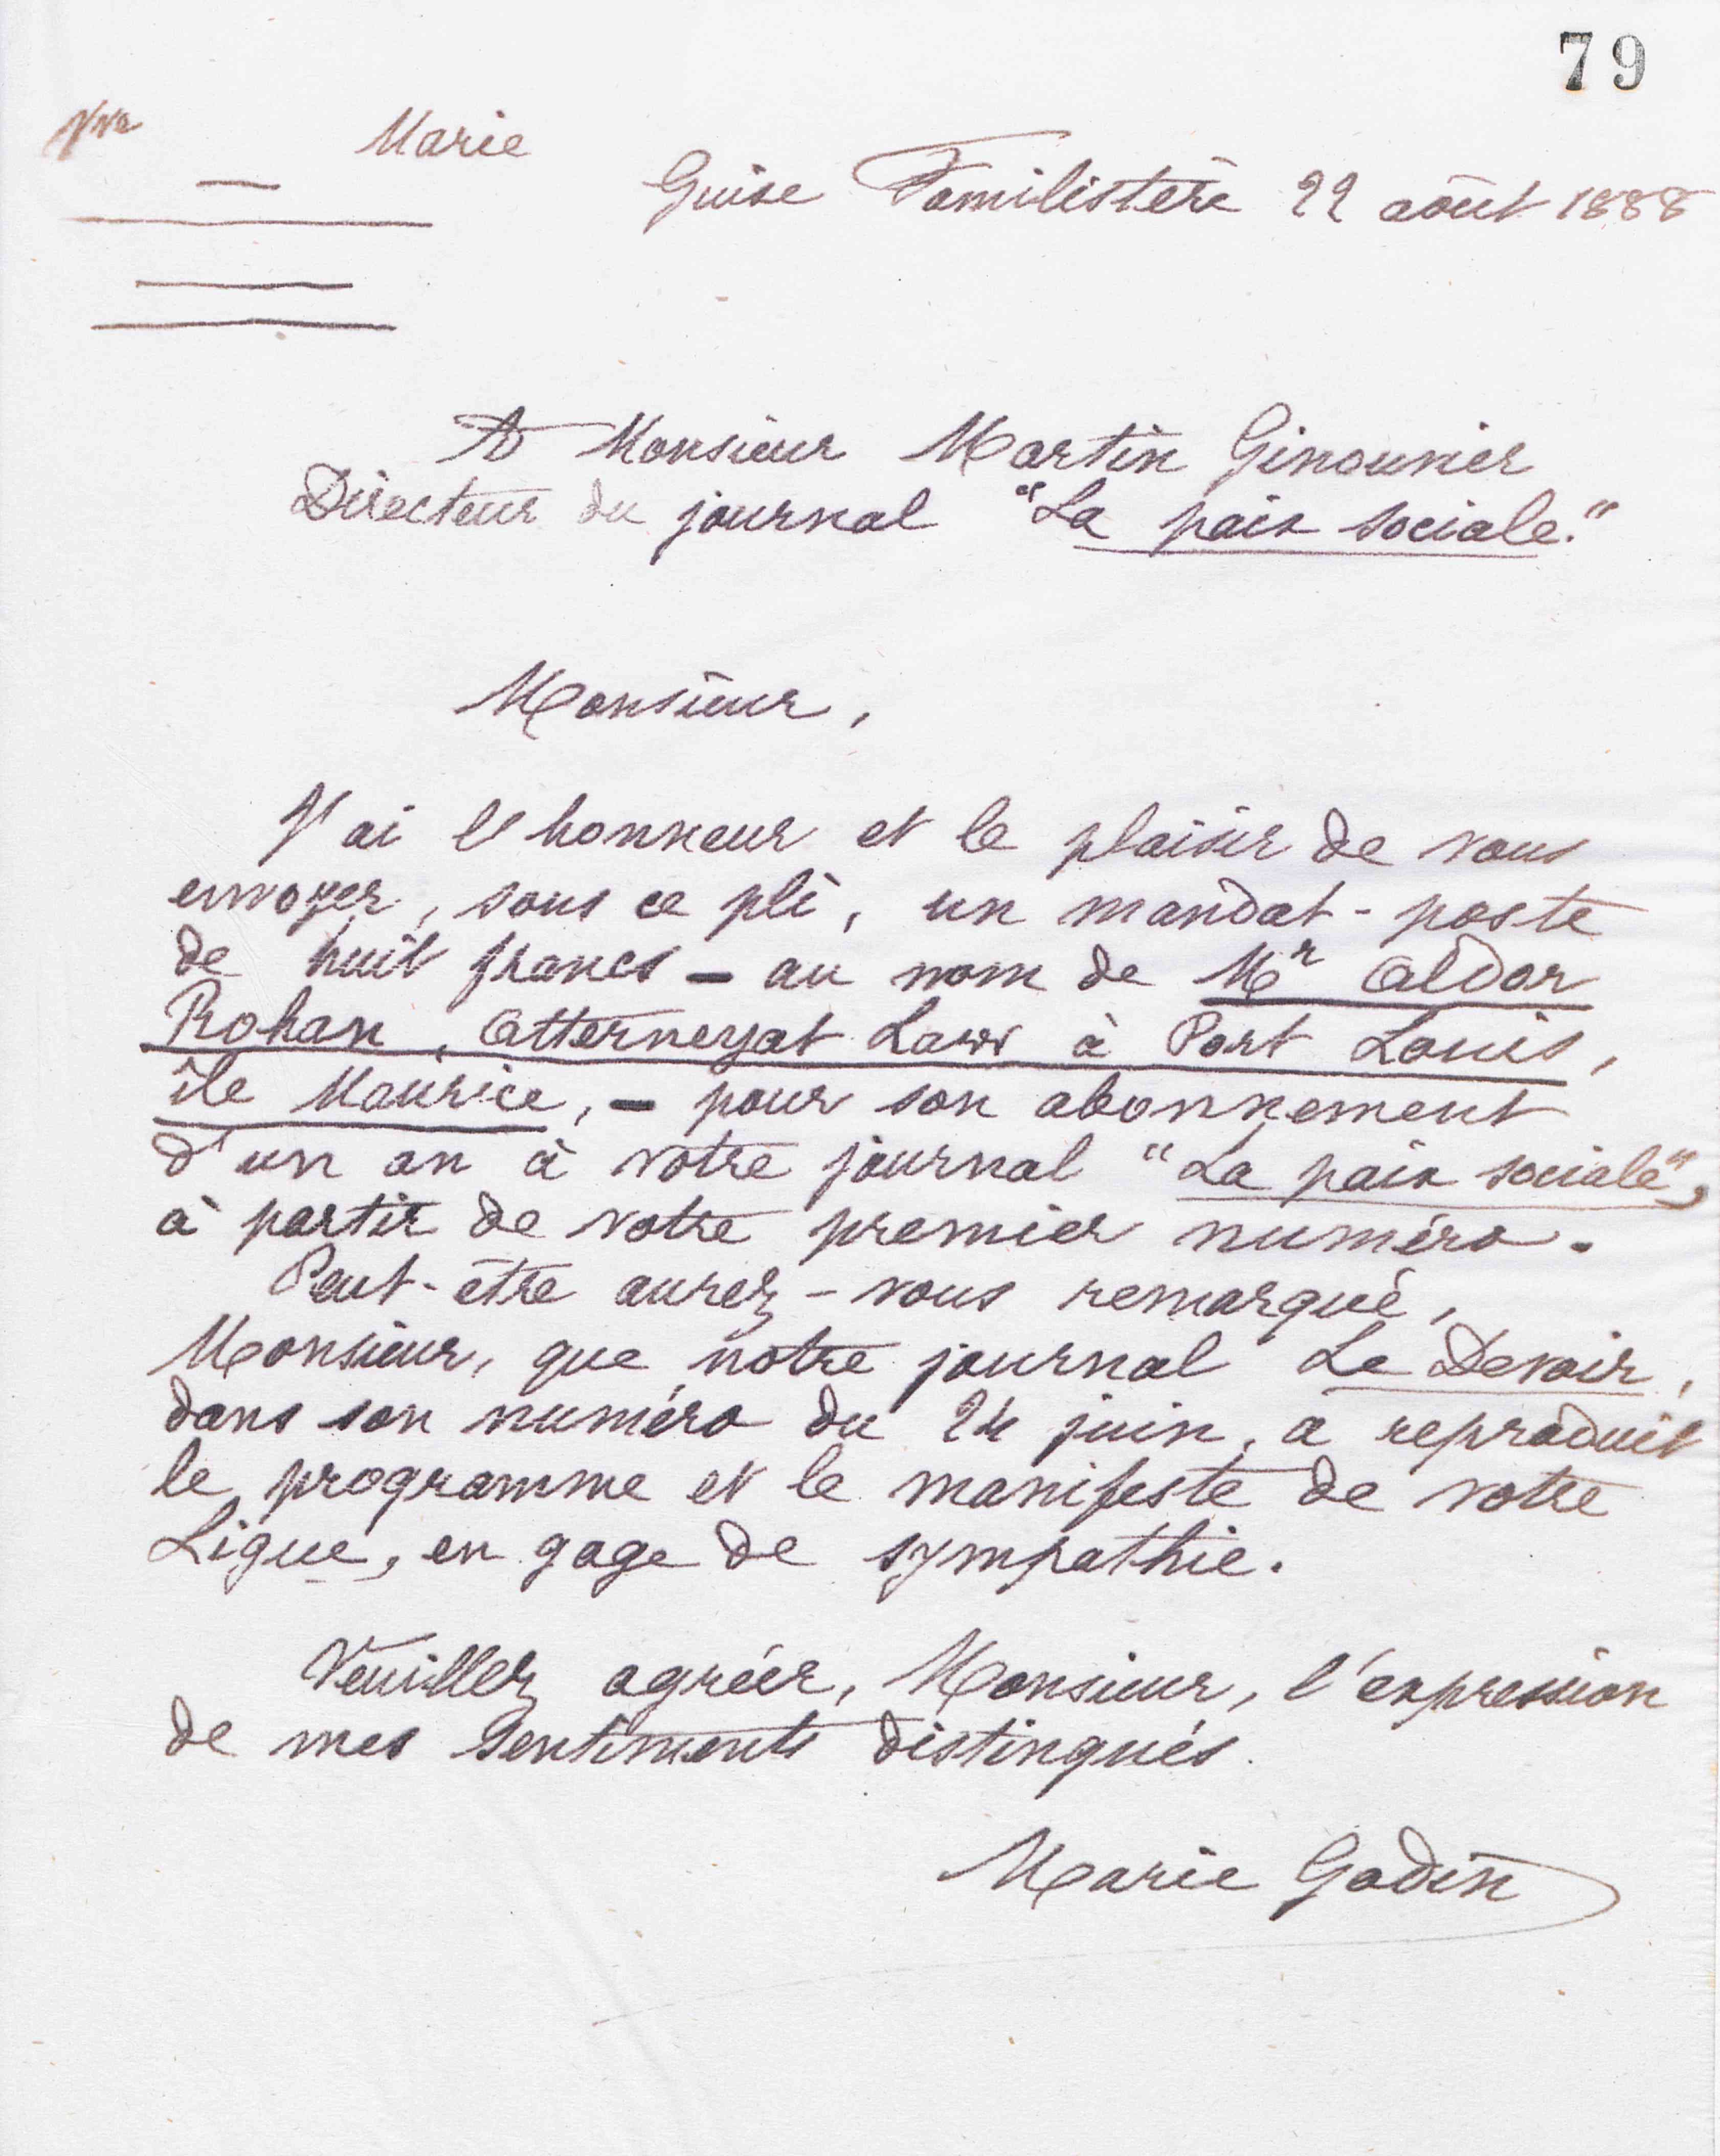 79
Vve Marie
Guise Familistère 22 août 1888
A Monsieur Martin Ginounier
Directeur du journal "La paix sociale."
Monsieur,
J'ai l'honneur et le plaisir de vous
envoyer, sous ce pli, un mandat-poste
de huit francs - au nom de Mr Aldor
Rohan, Atterneyat Laws à Port Louis,
île Maurice, - pour son abonnement
d'un an à votre journal "La paix sociale",
à partir de votre premier numéro.
Peut-être aurez-vous remarqué,
Monsieur, que notre journal Le Devoir,
dans son numéro du 24 juin, a reproduit
le programme et le manifeste de votre
Ligue, en gage de sympathie.
Veuillez agréer, Monsieur, l'expression
de mes sentiments distingués.
Marie Godin